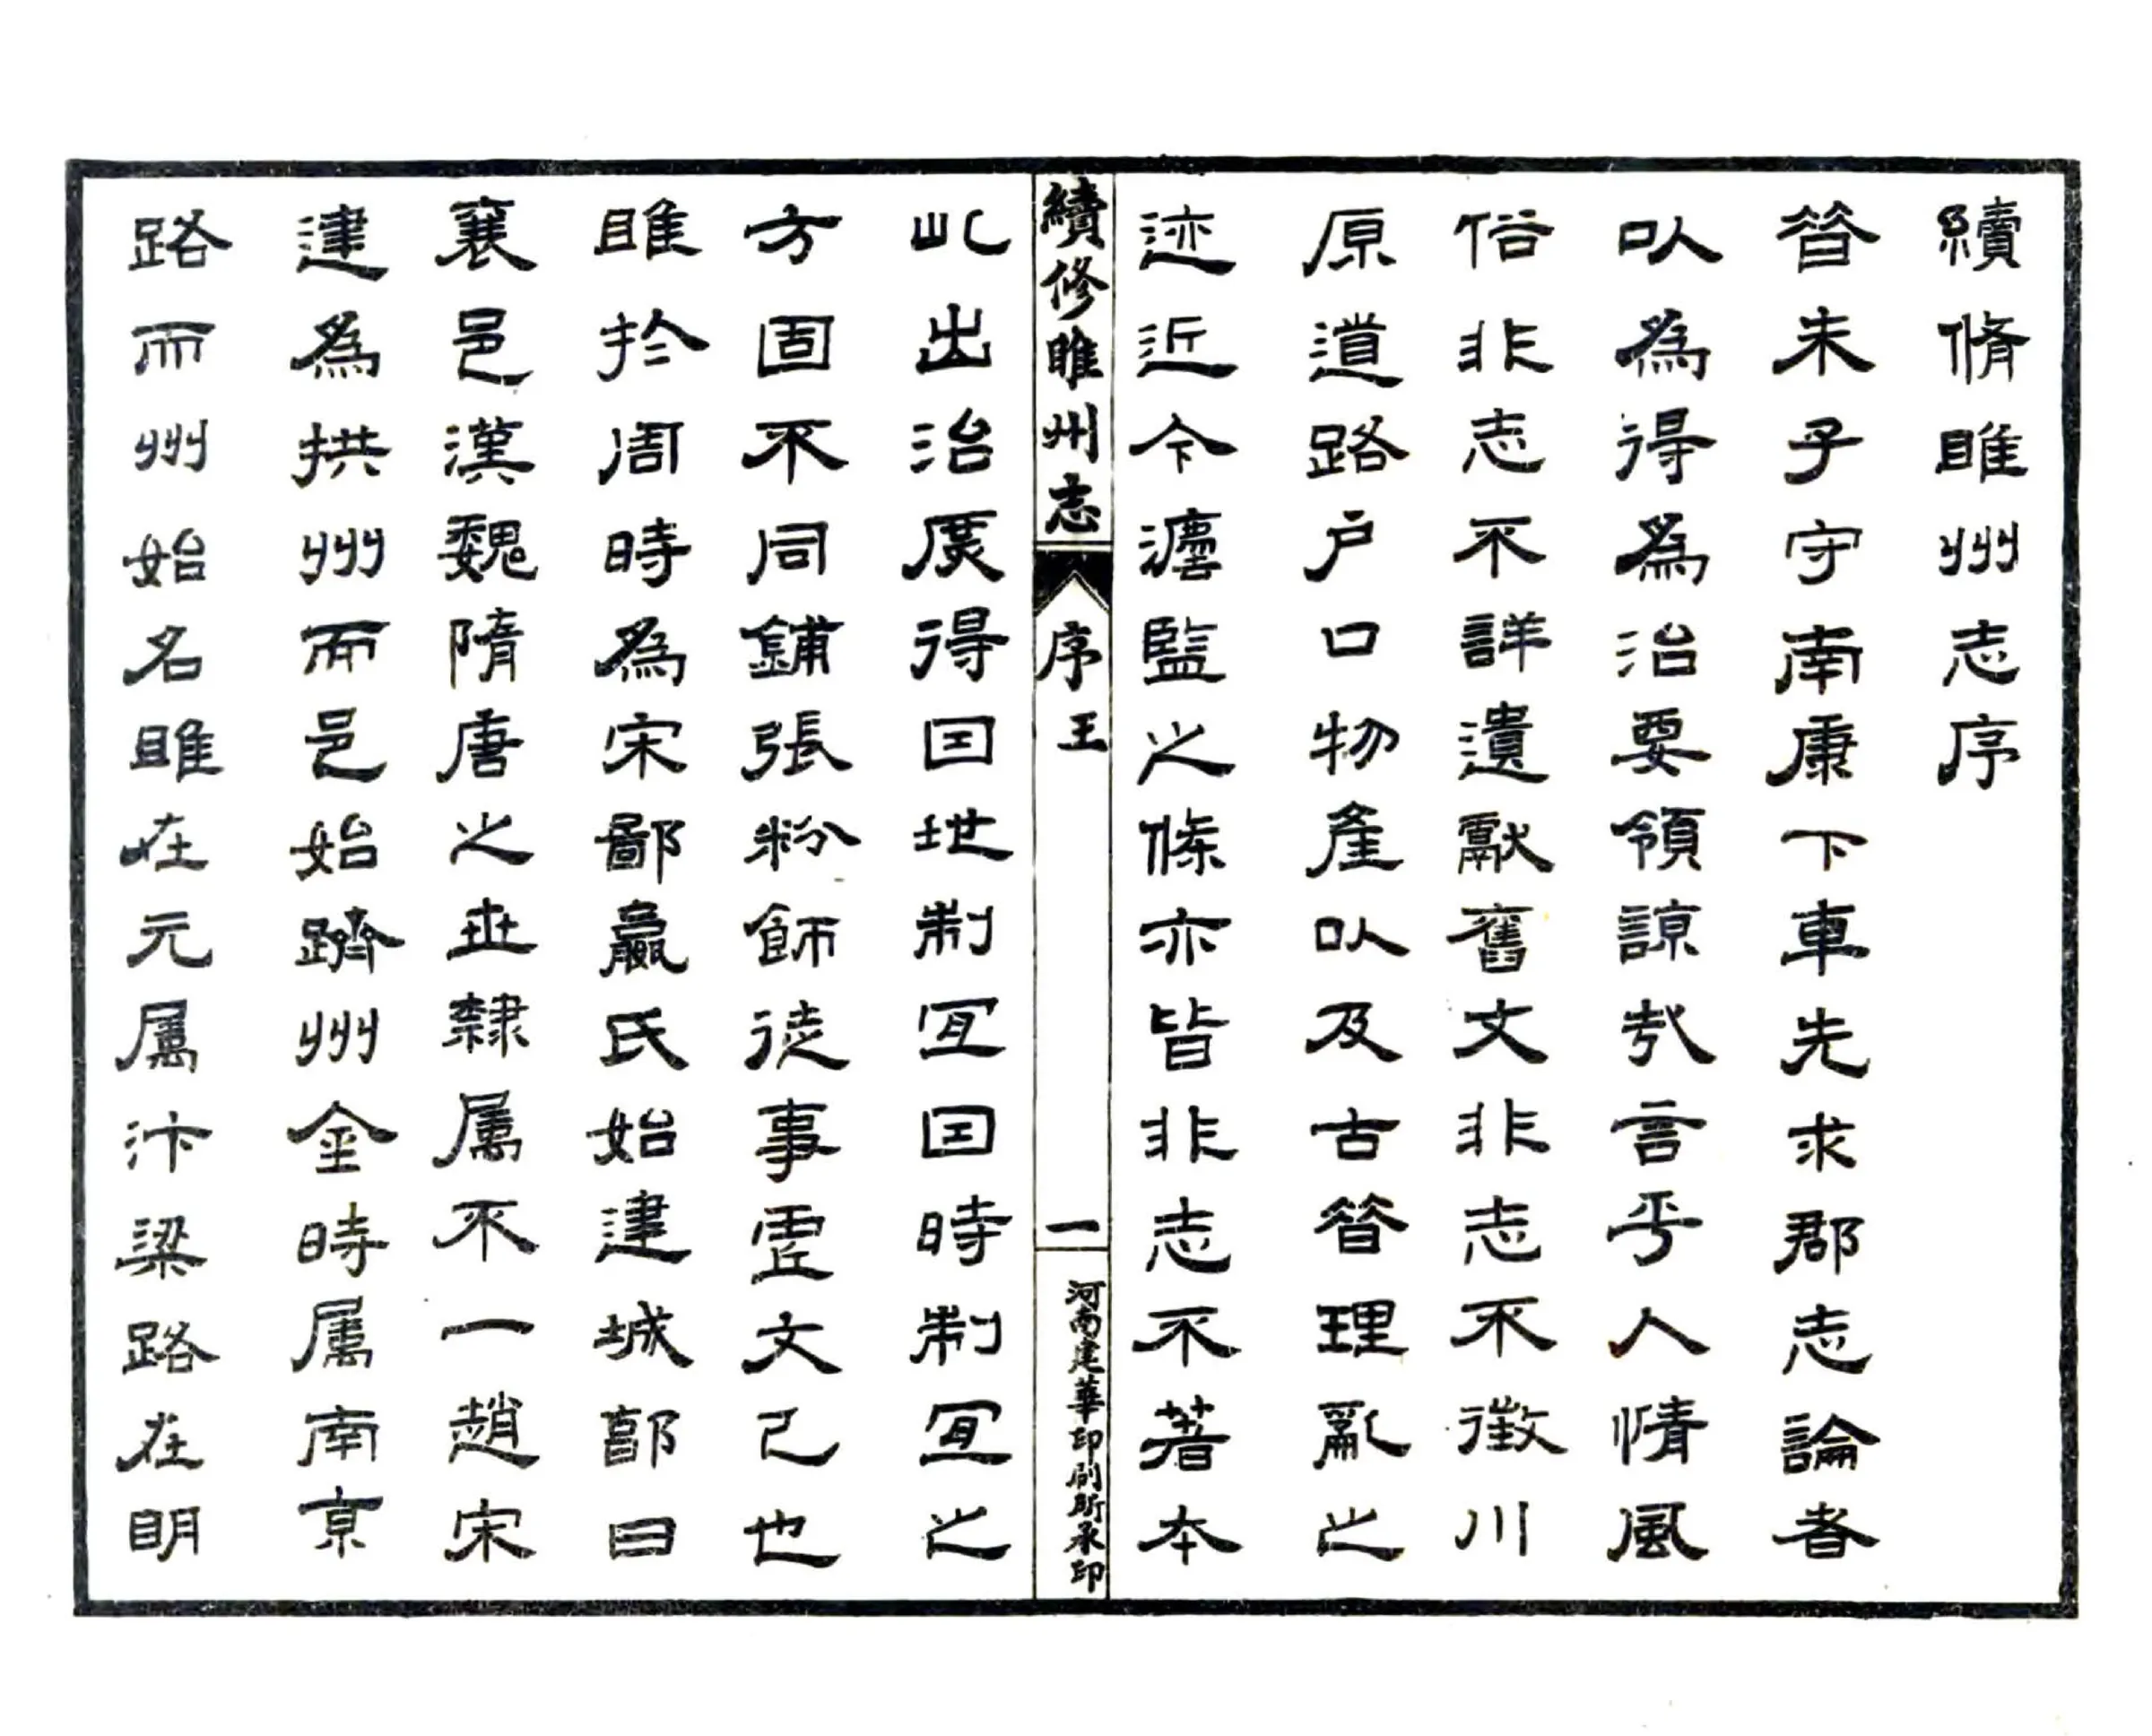 續脩睢州志序
昔朱子守南康下車先求郡志論者
以為得為治要領諒哉言乎人情風
俗非志不詳遺獻舊文非志不徵川
原道路户口物產以及古昔理亂之
迹近今灋監之條亦皆非志不著本
續修睢州志
序
王
一
河南建華印刷所承印
此出治庶得因地制宜因時制宜之
方固不同鋪張粉飾徒事虛文已也
睢於周時為宋鄙嬴氏始建城郭曰
襄邑漢魏隋唐之世隸屬不一趙宋
建為拱州而邑始躋州金時屬南京
路而州始名睢在元屬汴梁路在明